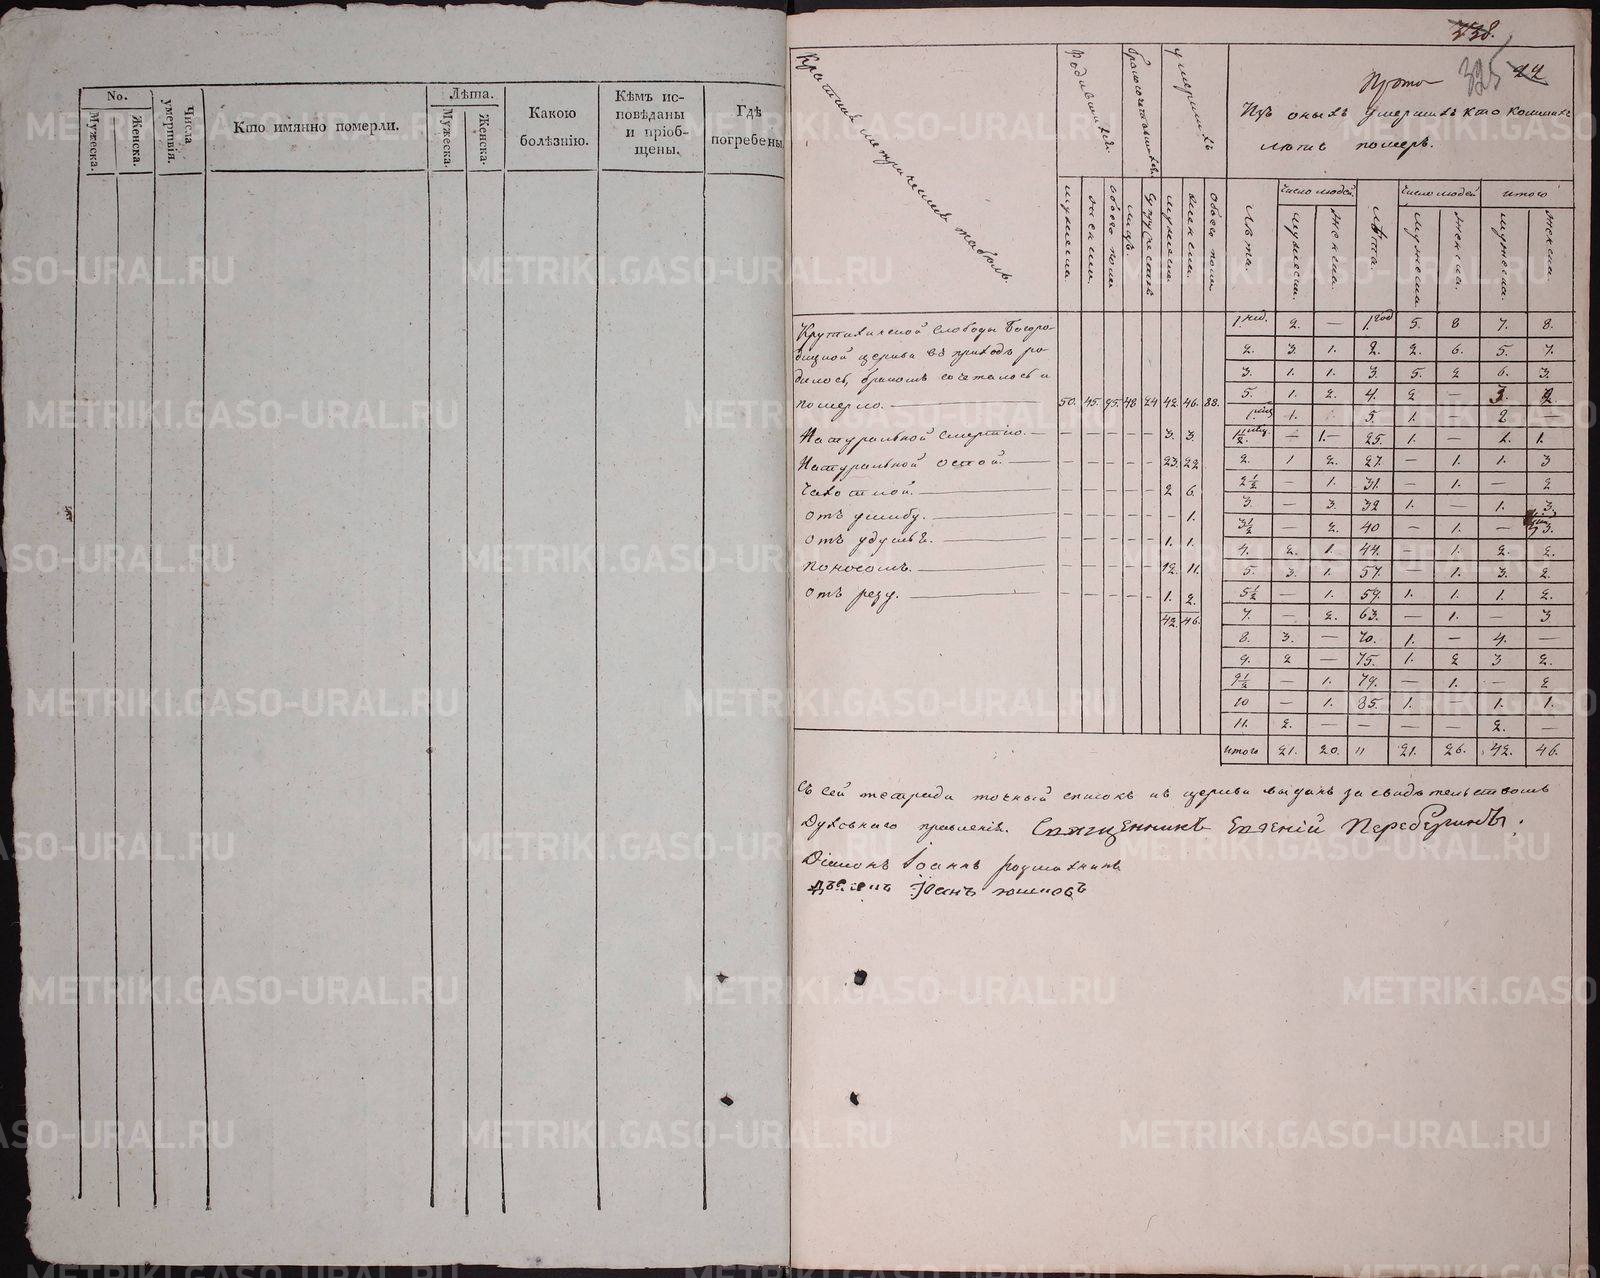 No.
Мужеска.
Женска.
Числа умертвія.
Кто имянно померли.
Лѣта.
Мужеска.
Женска.
Какою болѣзнію.
Кѣмъ ис-
повѣданы
и пріоб-
щены.
Гдѣ
погребены
338.
325
22
Краткая метрическая табель.
Родившихся.
бракосочетавшихся.
умершихъ
Изъ оныхъ умершихъ кто коликихъ
лѣтъ померъ.
мужеска.
женска.
обоего пола
лицъ.
супружествъ
мужеска.
женска.
обоего пола
Лѣта.
число людей
мужеска.
женска.
Лѣта.
число людей
мужеска.
женска.
итого
мужеска.
женска.
Крутихинской слободы Богоро-
дицкой церкви въ приходѣ ро-
дилось, бракомъ сочеталось и
померло. 50. 45. 95. 48 24 42. 46. 88.
Натуральной смертію. 3. 3.
Натуральной оспой. 23. 22
Чахоткой. 2 6.
отъ ушибу. - 1.
отъ удушья. 1. 1.
Поносомъ. 12. 11.
отъ резу. 1. 2.
42. 46.
1. нед. 2. — 1. год 5. 8 7. 8.
2. 3. 1. 2. 2. 6. 5. 7.
3. 1. 1. 3. 5. 2 6. 3.
5. 1. 2. 4. 2 — 3. 2.
1. 1. 5. 1. 2.
1½ — 1. 25. 1. — 1. 1.
2. 1 2. 27. — 1. 1. 3
2½ — 1. 31. — 1. — 2
3. — 3. 32 1. — 1. 3.
3½ — 2. 40 — 1. — 3.
4. 2. 1. 44. — 1. 2. 2.
5. 3. 1. 57. — 1. 3. 2.
5½ — 1. 59. 1. 1. 1. 2.
7. — 2. 63. — 1. — 3.
8. 3. — 70. 1. — 4. —
9. 2 — 75. 1. 2 3 2.
9½ — 1. 79. — 1. — 2
10 — 1. 85. 1. 1. 1.
11. 2. — — — — 2. —
итого 21. 20. 11 21. 26. 42. 46.
Съ сей тетради точный списокъ въ церковь выданъ за свидѣтельствомъ
Духовнаго правленія. Священникъ Евгеній
Діаконъ Іоаннъ
Іоанъ
METRIKI.GASO-URAL.RU